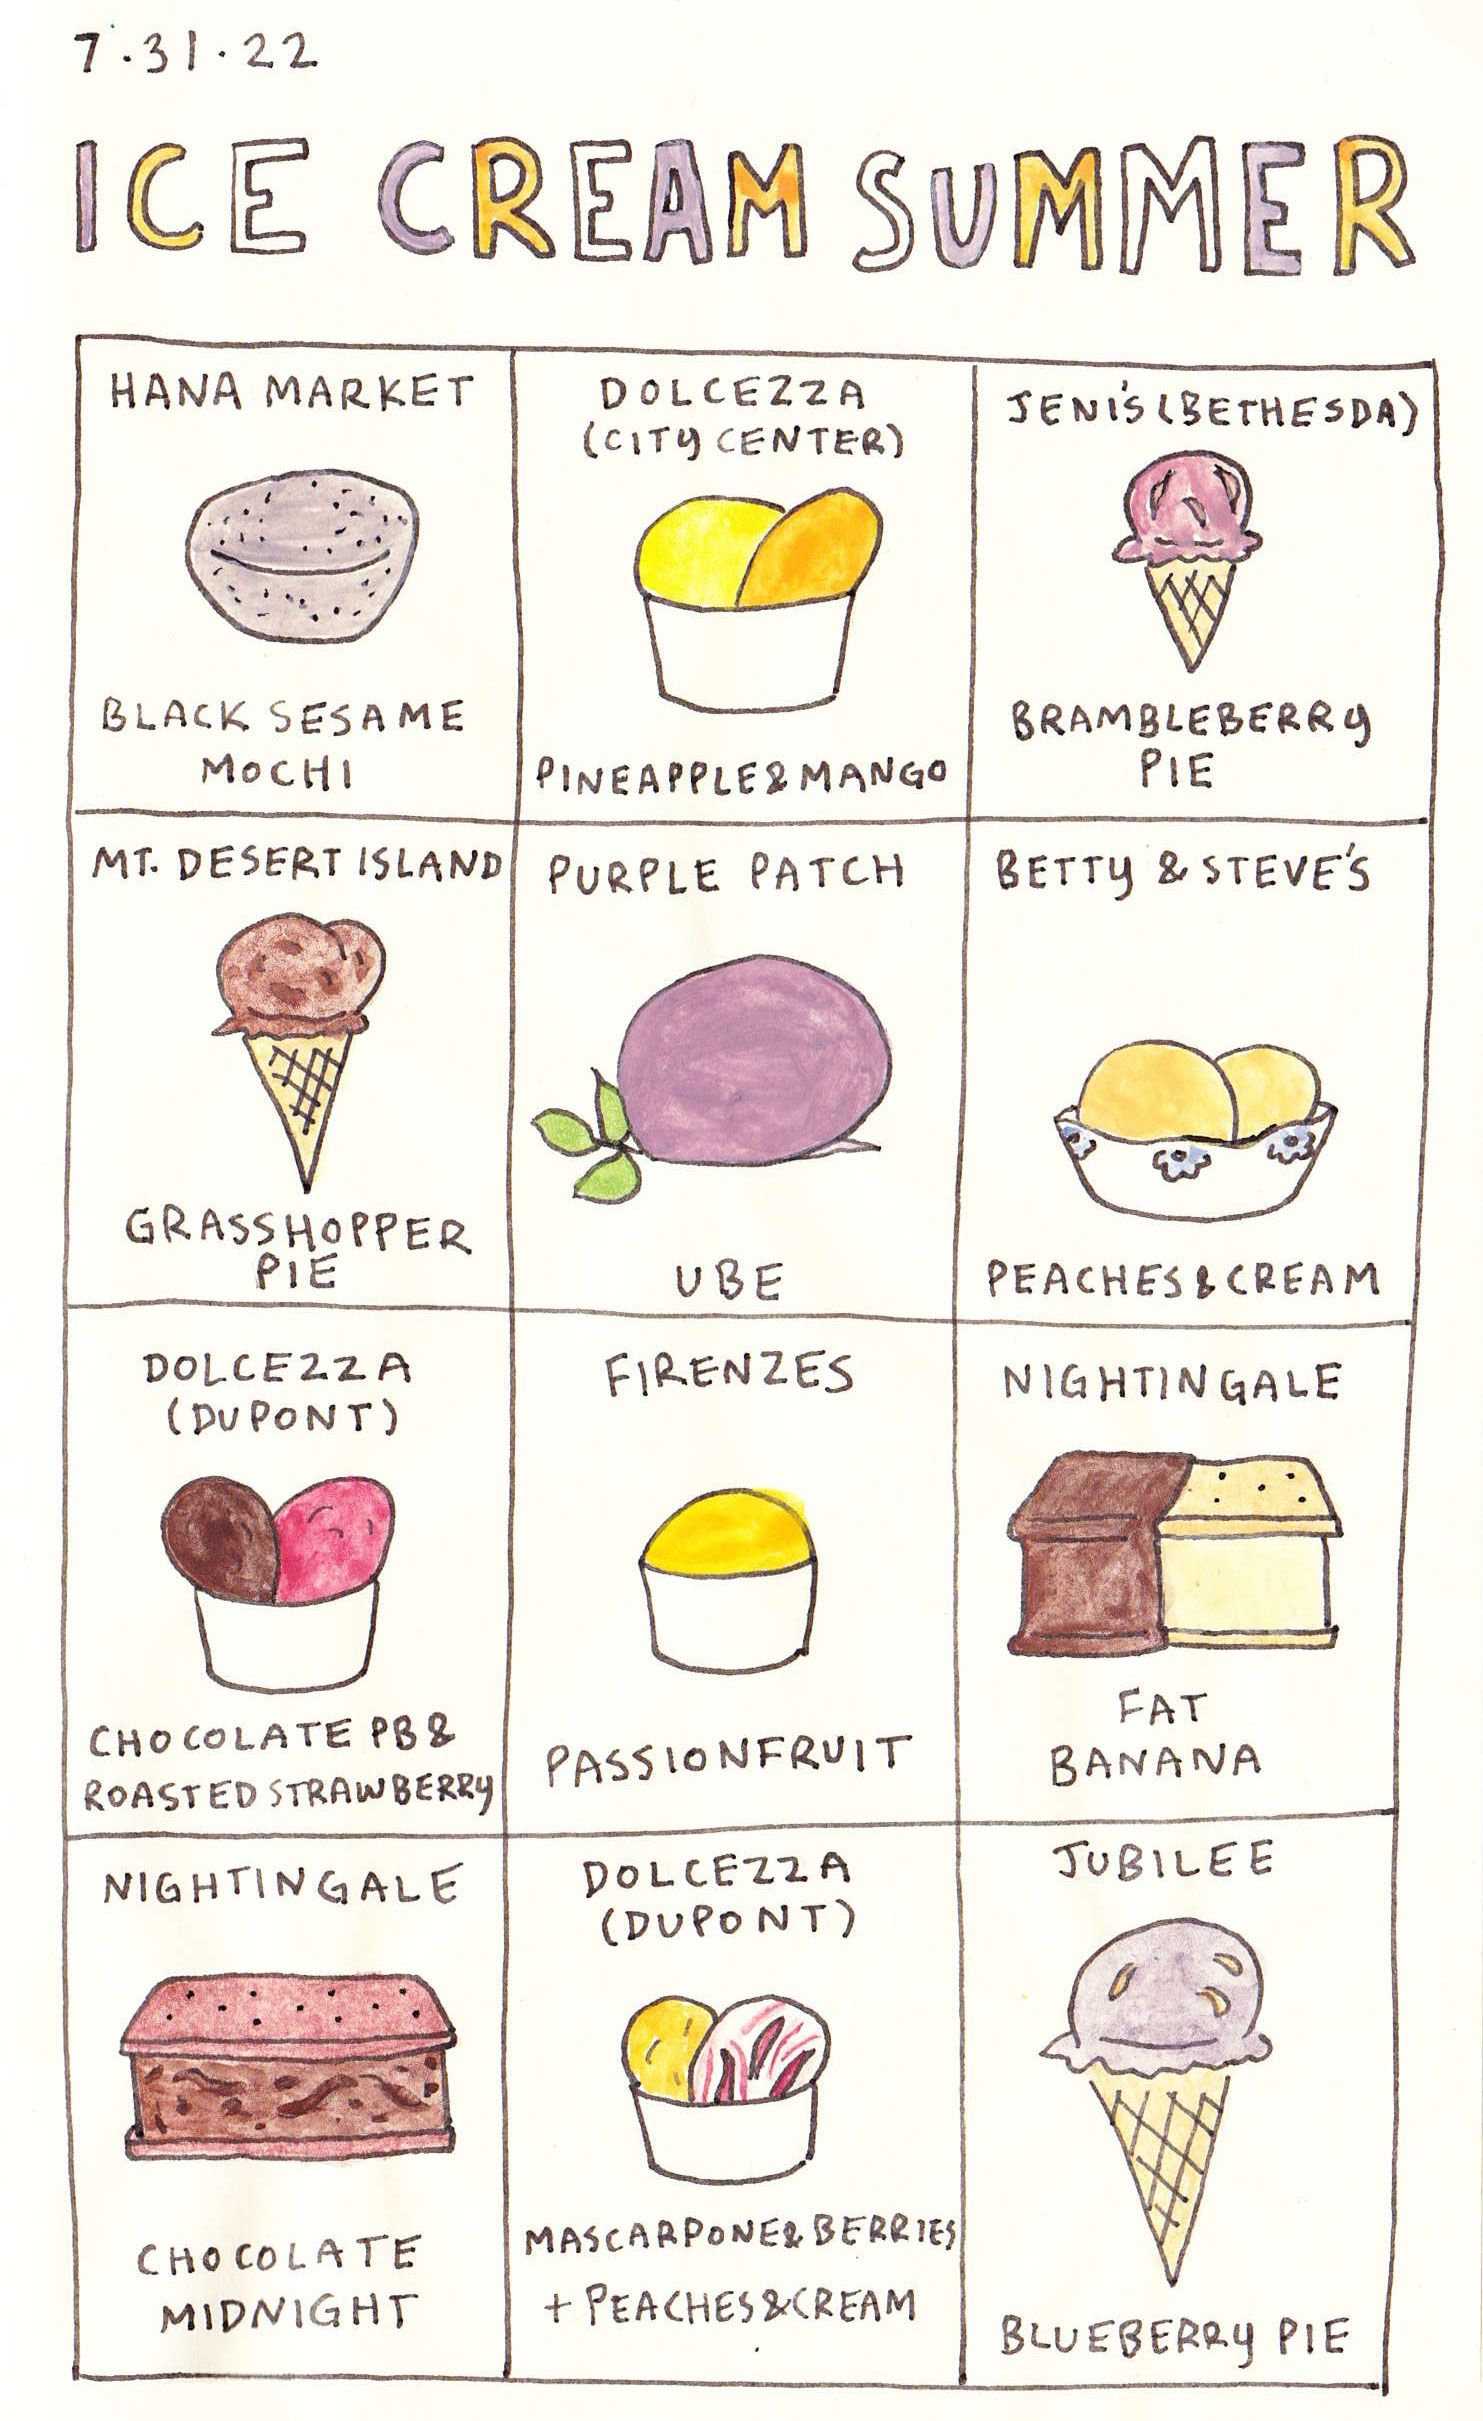 7.31.22
ICE CREAM SUMMER
HANA MARKET
BLACK SESAME
MOCHI
DOLCEZZA
(CITY CENTER)
PINEAPPLE & MANGO
JENI'S (BETHESDA)
BRAMBLEBERRY
PIE
MT. DESERT ISLAND
GRASSHOPPER
PIE
PURPLE PATCH
UBE
BETTY & STEVE'S
PEACHES & CREAM
DOLCEZZA
(DUPONT)
CHOCOLATE PB &
ROASTED STRAWBERRY
FIRENZES
PASSIONFRUIT
NIGHTINGALE
FAT
BANANA
NIGHTINGALE
CHOCOLATE
MIDNIGHT
DOLCEZZA
(DUPONT)
MASCARPONE & BERRIES
+ PEACHES & CREAM
JUBILEE
BLUEBERRY PIE